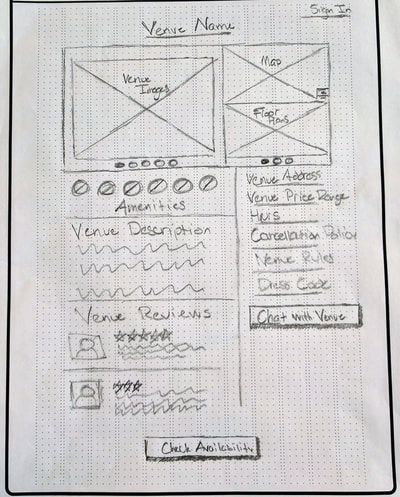 Sign In
Venue Name
Venue
Images
Map
Floor
Plans
Amenities
Venue Address
Venue Price Range
Hours
Cancellation Policy
Venue Rules
Dress Code
Chat with Venue
Venue Description
Venue Reviews
Check Availability